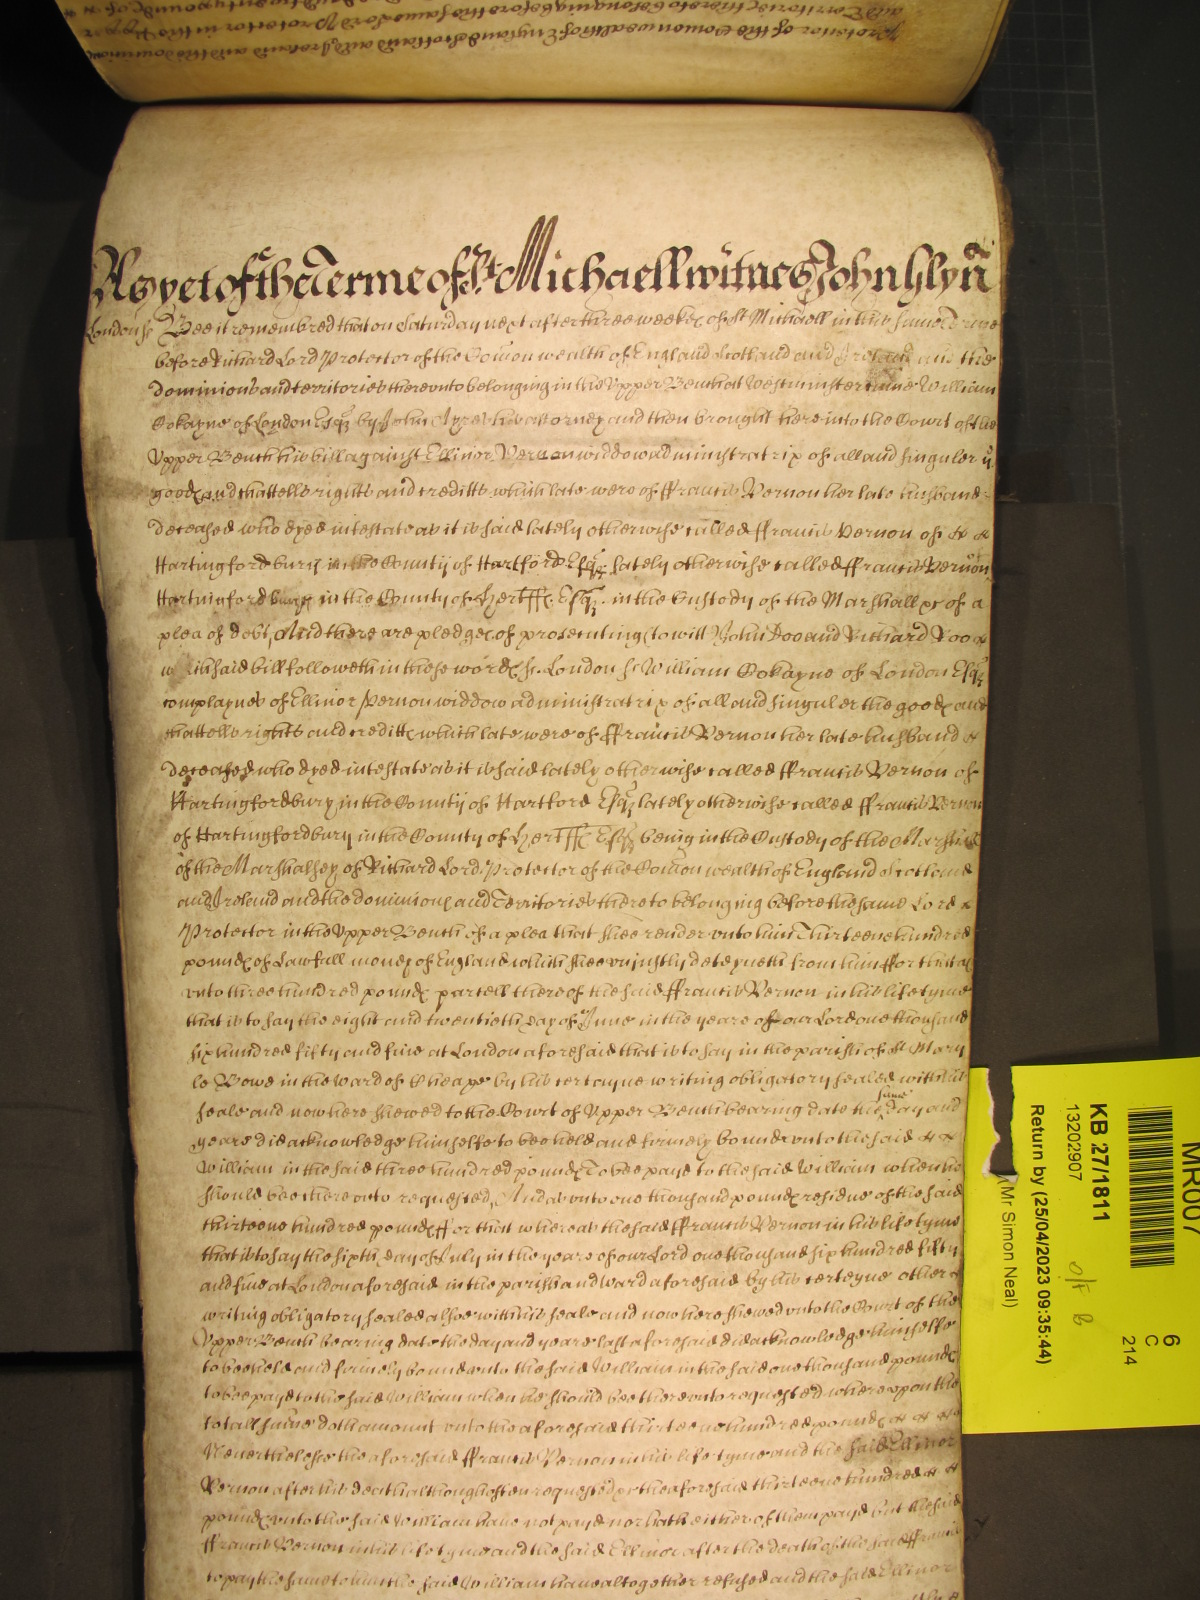 Protector of the Comonwealth of England Scotland and Ireland and the dominions
As yet of the Terme of St Michaell witnes John Glynn
London ss Bee it remembred that on Saturday next after three weekes of St Michaell in this same Terme
before Richard Lord Protector of the Comon wealth of England Scotland and Ireland and the
dominions and territories therevnto belonging in the Vpper Bench at Westminster came William
Cokayne of London Esqr by John his attorney and then brought here into the Court of the
Vpper Bench his bill against Ellinor Vernon widdow administratrix of all and singuler ye
goods and chattells rights and creditts which late were of ffrancis Vernon her late husband
deceased who dyed intestate as it is said lately otherwise called ffrancis Vernon of & &
Hartingfordbury in the County of Hartford Esqr lately otherwise called ffrancis Vernon
Hartingfordbury in the County of Hertff Esqr in the Custody of the Marshall &c of a
plea of debt And there are pledges of prosecuting to witt John Doo and Richard Roo &
which said bill followeth in these words ss London ss William Cokayne of London Esqr
complaynes of Ellinor Vernon widdow administratrix of all and singuler the goods and
chattells rights and creditts which late were of ffrancis Vernon her late husband &
deceased who dyed intestate as it is said lately otherwise called ffrancis Vernon of
Hartingfordbury in the County of Hartford Esqr lately otherwise called ffrancis Vernon
of Hartingfordbury in the County of Hertff Esqr being in the Custody of the Marshall
of the Marshalsey of Richard Lord Protector of the Comon wealth of England Scotland
and Ireland and the dominions and Territories thereto belonging before the same Lord &
Protector in the Vpper Bench of a plea that shee render vnto him Thirteene hundred
pounds of Lawfull money of England which shee vniustly deteyneth from him ffor that as
vnto three hundred pounds parcell thereof the said ffrancis Vernon in his life tyme
that is to say the eight and twentieth day of June in the yeare of our Lord one thousand
six hundred fifty and five at London aforesaid that is to say in the parish of St Mary
le Bowe in the ward of Cheape by his certayne writing obligatory sealed with his
seale and now here shewed to the Court of Vpper Bench bearing date the same day and
yeare did acknowledge himselfe to bee held and firmely bound vnto the said & &
William in the said three hundred pounds To bee payd to the said William when hee
should bee there vnto requested And as vnto one thousand pounds residue of the said
thirteene hundred pounds ffor that whereas the said ffrancis Vernon in his life tyme
that is to say the sixth day of July in the yeare of our Lord one thousand six hundred fifty
and five at London aforesaid in the parish and ward aforesaid by his certeyne other &
writing obligatory sealed alsoe with his seale and now here shewed vnto the Court of the
Vpper Bench bearing date the day and yeare last aforesaid did acknowledge himselfe
to bee held and firmely bound vnto the said William in the said one thousand pounds
to bee payd to the said William when hee should bee therevnto requested wherevpon the
totall summe doth amount vnto the aforesaid thirteene hundred pounds & & &
Neverthelesse the aforesaid ffrancis Vernon in his life tyme and the said Ellinor
Vernon after his death although often requested &c the aforesaid thirteene hundred & &
pounds vnto the said William have not payd nor hath either of them payd but the said
ffrancis Vernon in his life tyme and the said Ellinor after the death of the said ffrancis
to pay the same to him the said William have altogether refused and the said Ellinor
MR007
KB 27/1811
13202907
Return by (25/04/2023 09:35:44)
(Mr Simon Neal)
6
C
214